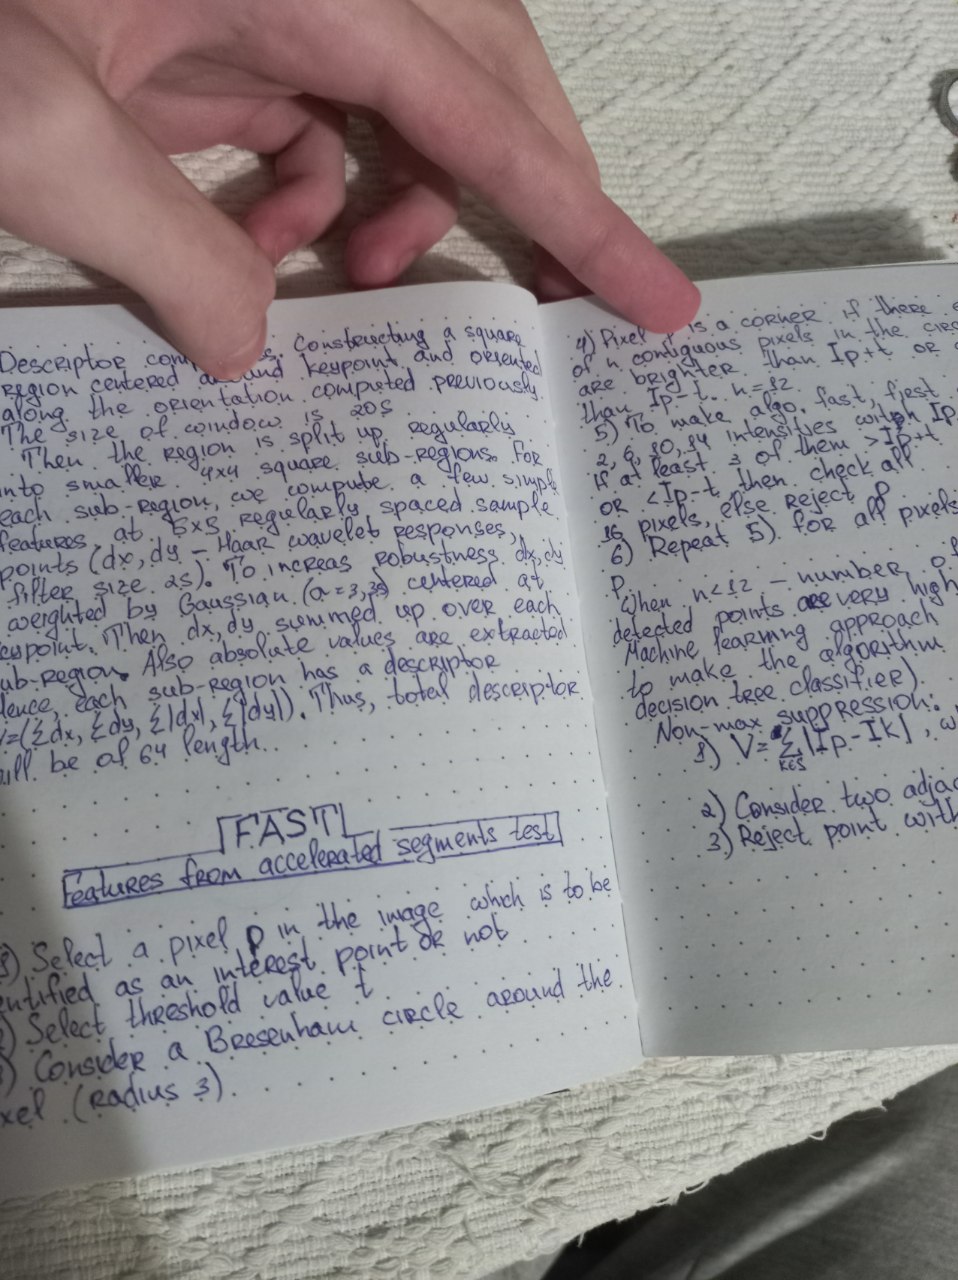 Descriptor Constructing a square
region centered around keypoint and oriented
along the orientation computed previously.
The size of window is 20s
Then the region is split up regularly
into smaller 4x4 square sub-regions. For
each sub-region, we compute a few simple
features at 5x5 regularly spaced sample
points (dx, dy – Haar wavelet responses,
filter size 2s). To increas robustness dx, dy
weighted by Gaussian centered at
Then dx, dy summed up over each
Also absolute values are extracted
each sub-region has a descriptor
=(Σdx, Σdy, Σ|dx|, Σ|dy|). Thus, total descriptor
be of 64 length.
FAST
Features from accelerated segments test
Select a pixel p in the image which is to be
as an interest point or not
Select threshold value t
Consider a Bresenham circle around the
(radius 3).
4) Pixel is a corner if there
of n contiguous pixels in the
are brighter than Ip+t or
than Ip-t. n=12
5) To make algo. fast, first
2, 6, 10, 14 intensities with Ip
if at least 3 of them >Ip+t
or <Ip-t then check all
16 pixels, else reject p
6) Repeat 5) for all pixels
When n<12 – number of
detected points are very high
Machine learning approach
to make the algorithm
decision tree classifier).
Non-max suppression:
1) V=Σ|Ip-Ik|,
k∈S
2) Consider two
3) Reject point with